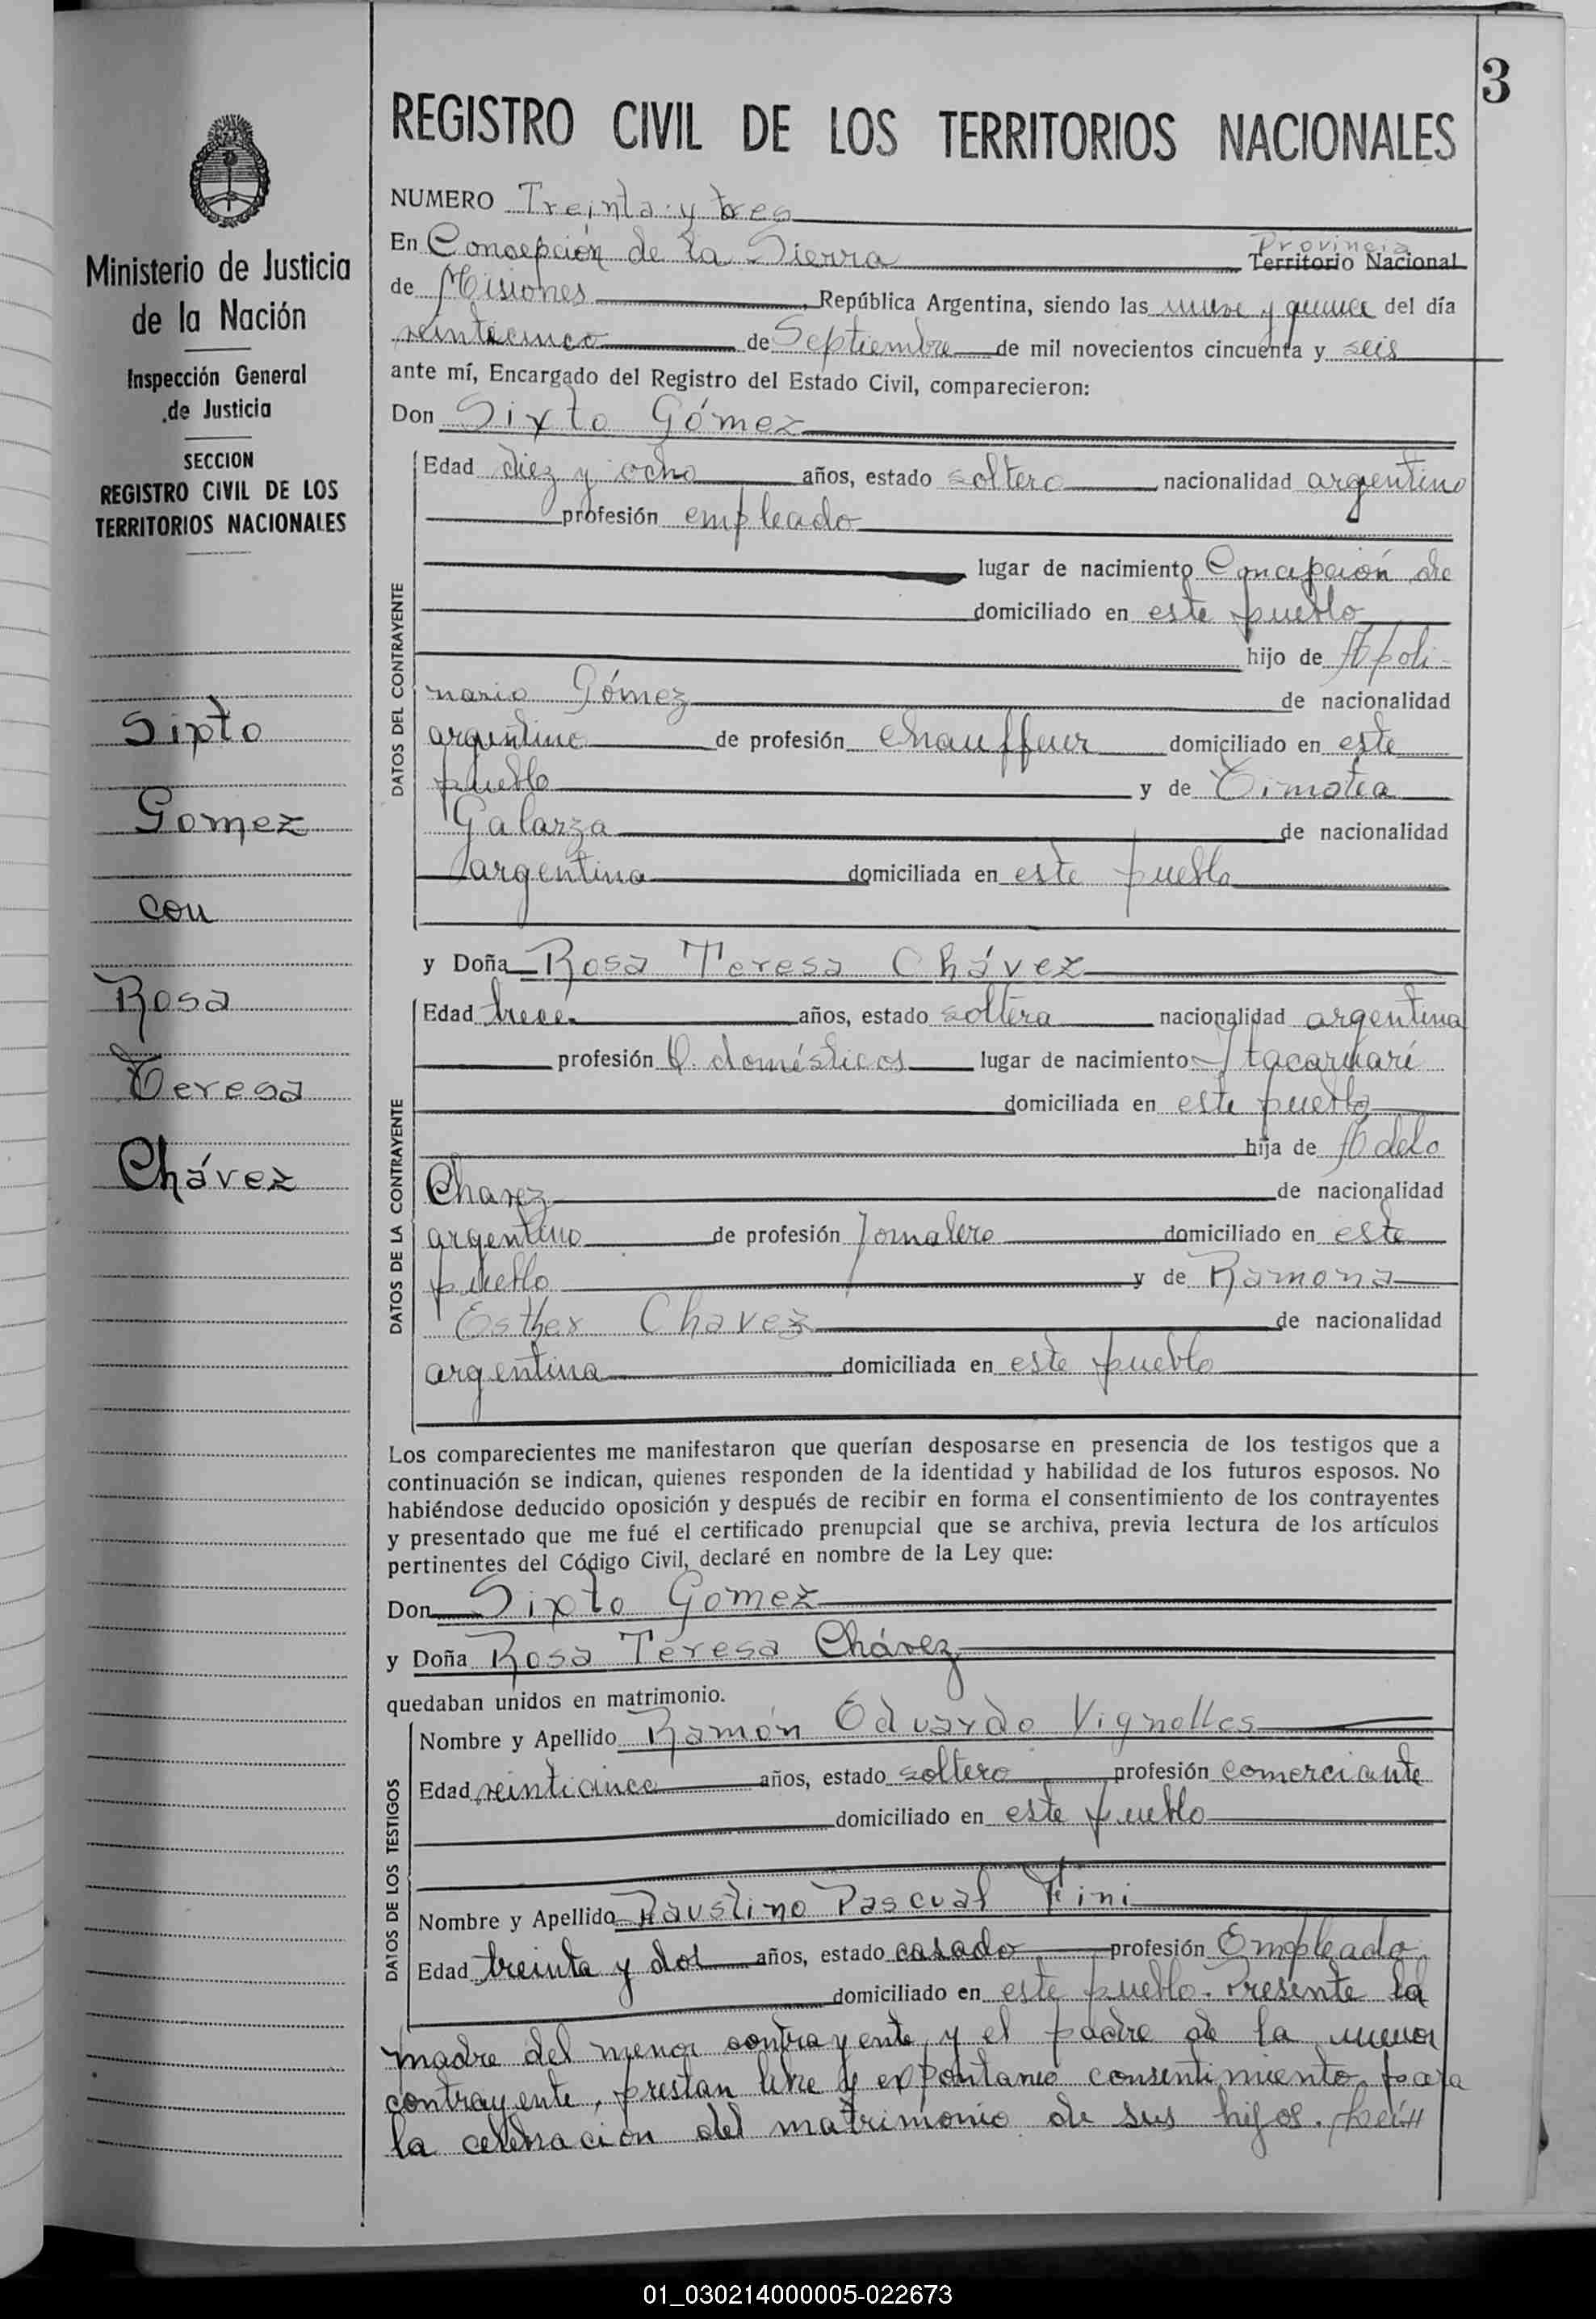 3
REGISTRO CIVIL DE LOS TERRITORIOS NACIONALES
Ministerio de Justicia
de la Nación
Inspección General
de Justicia
SECCION
REGISTRO CIVIL DE LOS
TERRITORIOS NACIONALES
Sixto
Gomez
con
Rosa
Teresa
Chávez
NUMERO Treinta y tres
Provincia
En Concepción de la Sierra Territorio Nacional
de Misiones, República Argentina, siendo las nueve y quince del día
veinticinco de Septiembre de mil novecientos cincuenta y seis
ante mí, Encargado del Registro del Estado Civil, comparecieron:
Don Sixto Gómez
DATOS DEL CONTRAYENTE
Edad diez y ocho años, estado soltero nacionalidad argentino
profesión empleado
lugar de nacimiento Concepción de
domiciliado en este pueblo
hijo de Apoli-
nario Gómez de nacionalidad
argentino de profesión chauffeur domiciliado en este
pueblo y de Timotea
Galarza de nacionalidad
argentina domiciliada en este pueblo
y Doña Rosa Teresa Chávez
DATOS DE LA CONTRAYENTE
Edad trece años, estado soltera nacionalidad argentina
profesión Q. domésticos lugar de nacimiento Itacaruaré
domiciliada en este pueblo
hija de Adelo
Chavez de nacionalidad
argentino de profesión Jornalero domiciliado en este
pueblo y de Ramona
Esther Chavez de nacionalidad
argentina domiciliada en este pueblo
Los comparecientes me manifestaron que querían desposarse en presencia de los testigos que a
continuación se indican, quienes responden de la identidad y habilidad de los futuros esposos. No
habiéndose deducido oposición y después de recibir en forma el consentimiento de los contrayentes
y presentado que me fué el certificado prenupcial que se archiva, previa lectura de los artículos
pertinentes del Código Civil, declaré en nombre de la Ley que:
Don Sixto Gomez
y Doña Rosa Teresa Chávez
quedaban unidos en matrimonio.
DATOS DE LOS TESTIGOS
Nombre y Apellido Ramón Eduardo Vignolles
Edad veinticinco años, estado soltero profesión comerciante
domiciliado en este pueblo
Nombre y Apellido Faustino Pascual Fini
Edad treinta y dos años, estado casado profesión Empleado
domiciliado en este pueblo. Presente la
madre del menor contrayente y el padre de la menor
contrayente, prestan libre y expontaneo consentimiento para
la celebración del matrimonio de sus hijos.
01_030214000005-022673